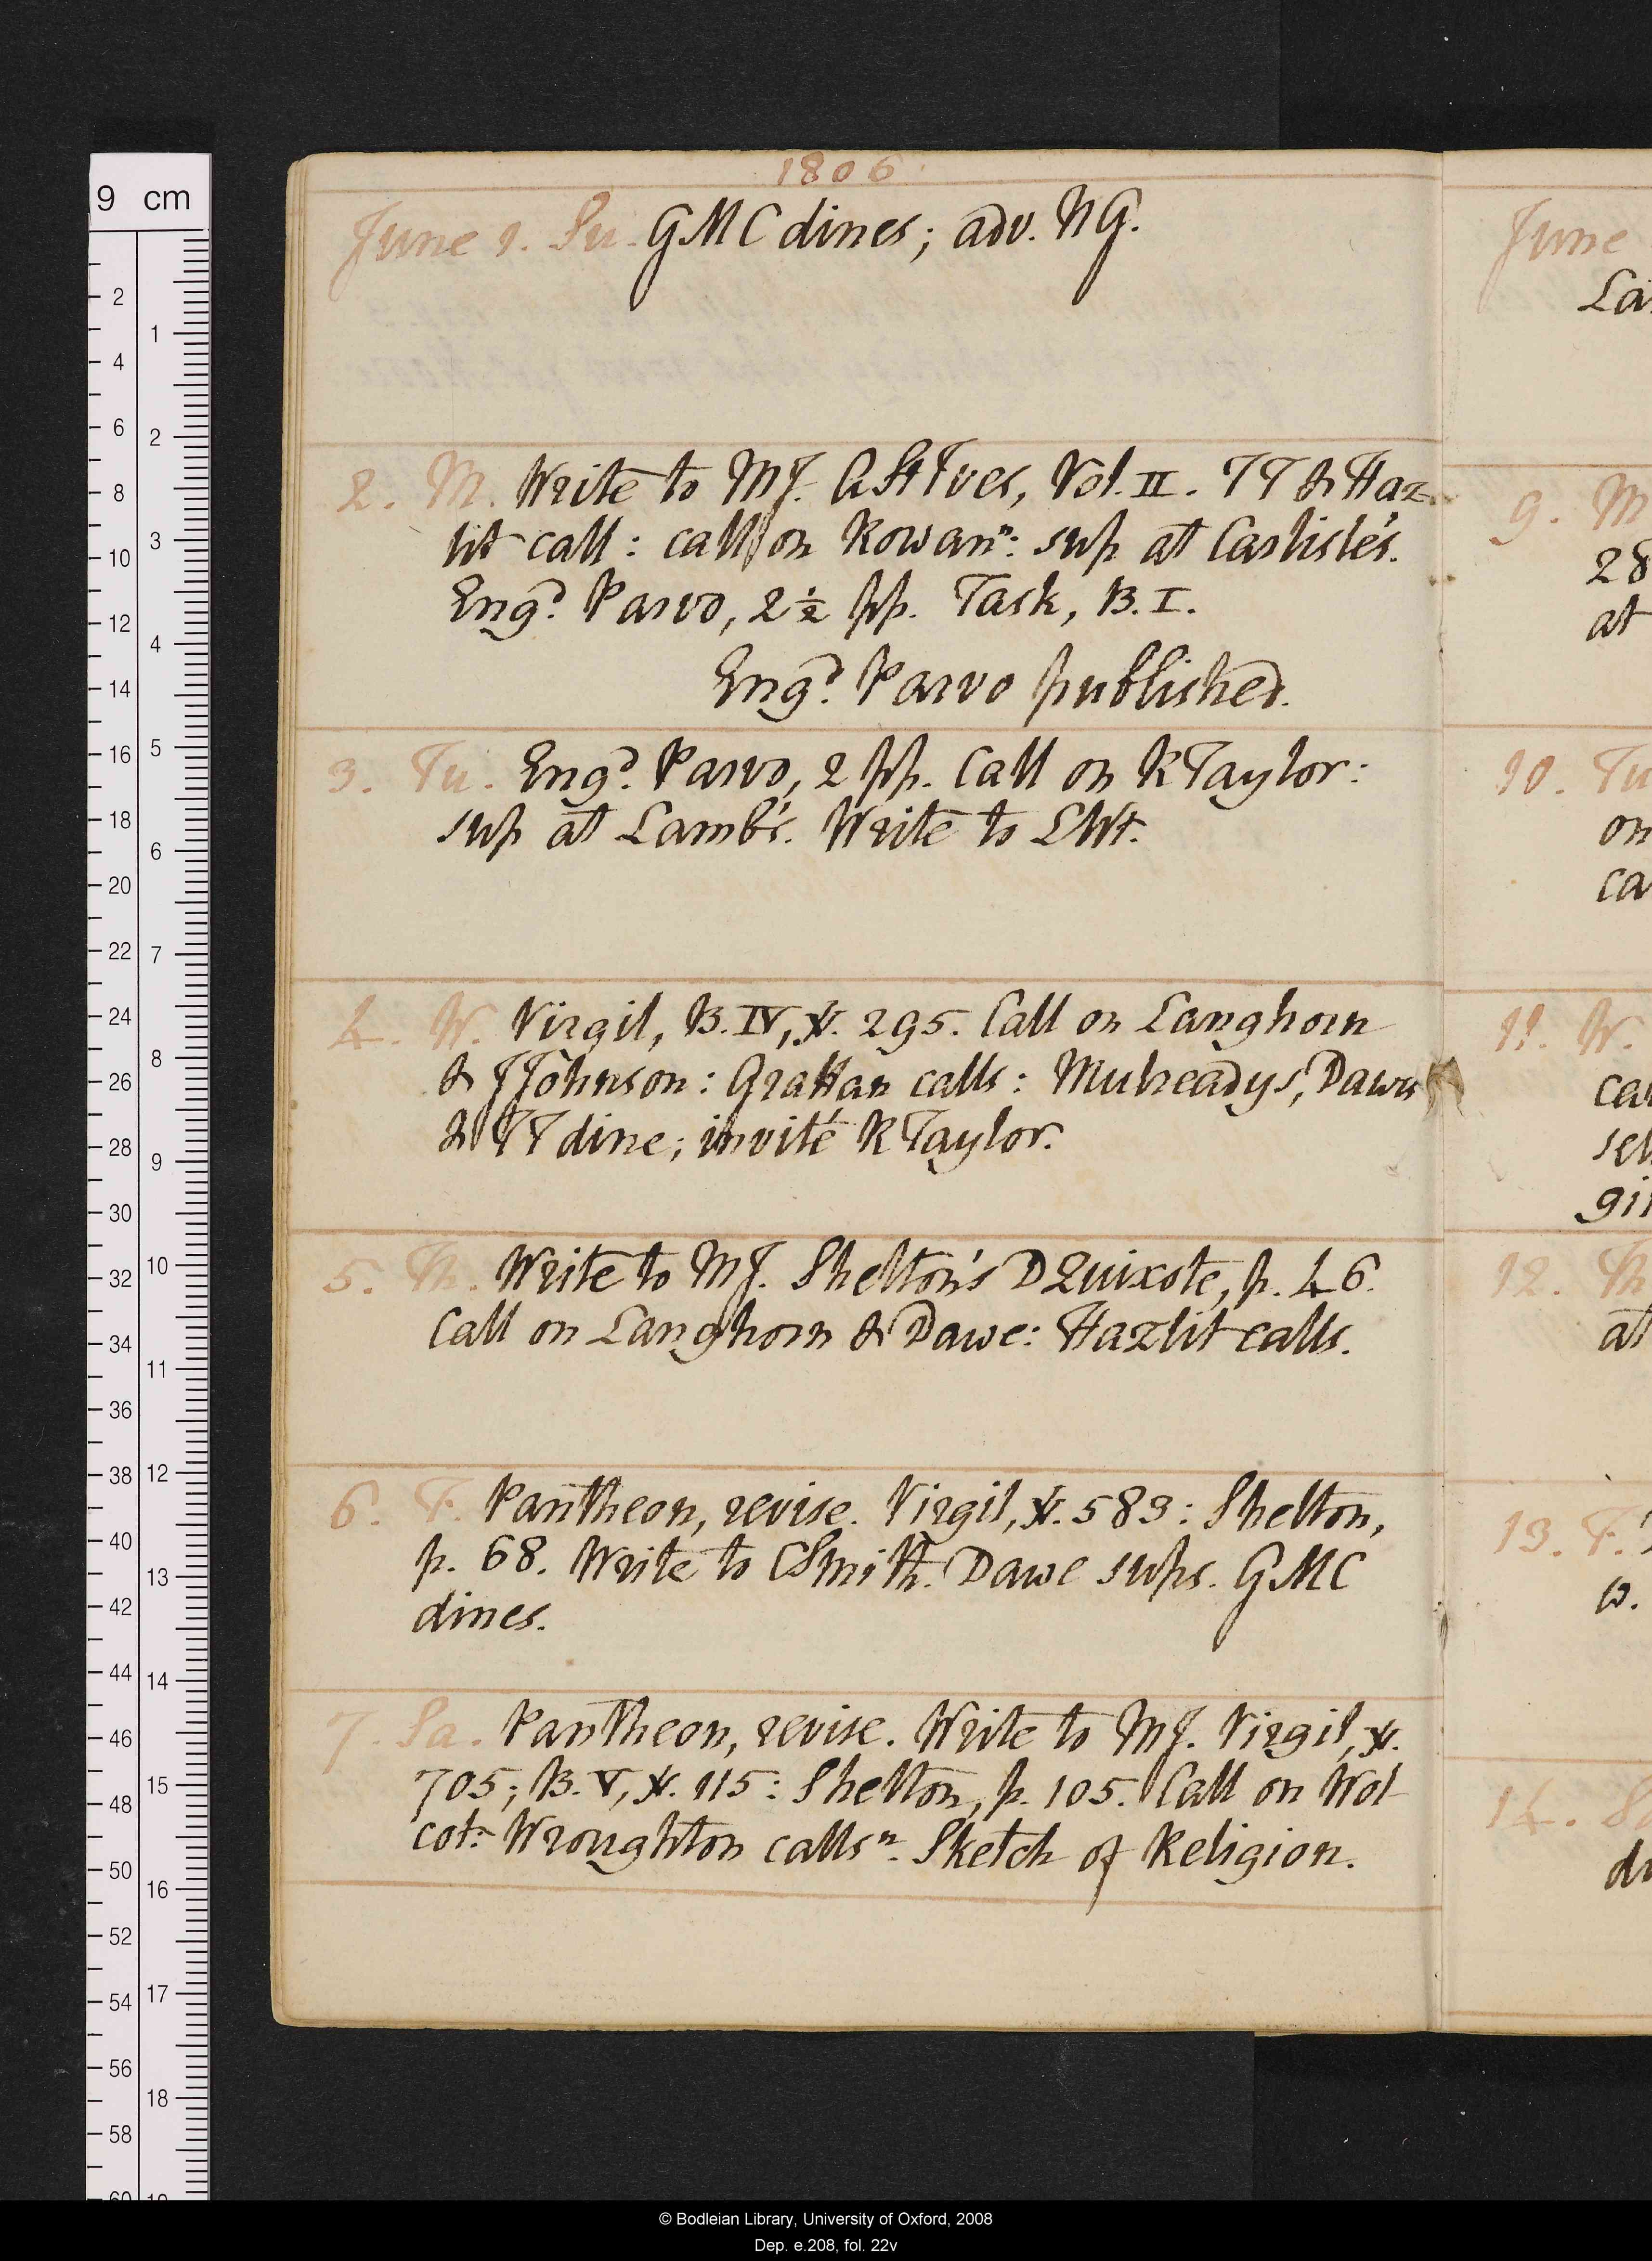 1806.
June 1. Su. GMC dines; adv. NG.
2. M. Write to MJ. A St Ives, Vol. II. TT & Haz-
lit call: call on Rowanⁿ: sup at Carlisle's.
Engᵈ. Parvo, 2½ pp. Task, B. I.
Engᵈ. Parvo published.
3. Tu. Engᵈ. Parvo, 2 pp. Call on R Taylor:
sup at Lamb's. Write to LWt.
4. W. Virgil, B. IV, v. 295. Call on Langhorn
& J Johnson: Grattan calls: Mulreadys, Dawe
& TT dine; invité R Taylor.
5. Th. Write to MJ. Shelton's D Quixote, p. 46.
Call on Langhorn & Dawe: Hazlit calls.
6. F. Pantheon, revise. Virgil, v. 583: Shelton,
p. 68. Write to CSmith. Dawe sups. GMC
dines.
7. Sa. Pantheon, revise. Write to MJ. Virgil, v.
705; B. V, v. 115: Shelton, p. 105. Call on Wol
cot: Wroughton callsⁿ. Sketch of Religion.
June
La
9. M
28
at
10. Tu
on
ca
11. W.
cal
sel
gil
12. Th
at
13. F.
p.
14. Sa
di
9 cm
2 4 6 8 10 12 14 16 18 20 22 24 26 28 30 32 34 36 38 40 42 44 46 48 50 52 54 56 58 60
1 2 3 4 5 6 7 8 9 10 11 12 13 14 15 16 17 18 19
© Bodleian Library, University of Oxford, 2008
Dep. e.208, fol. 22v